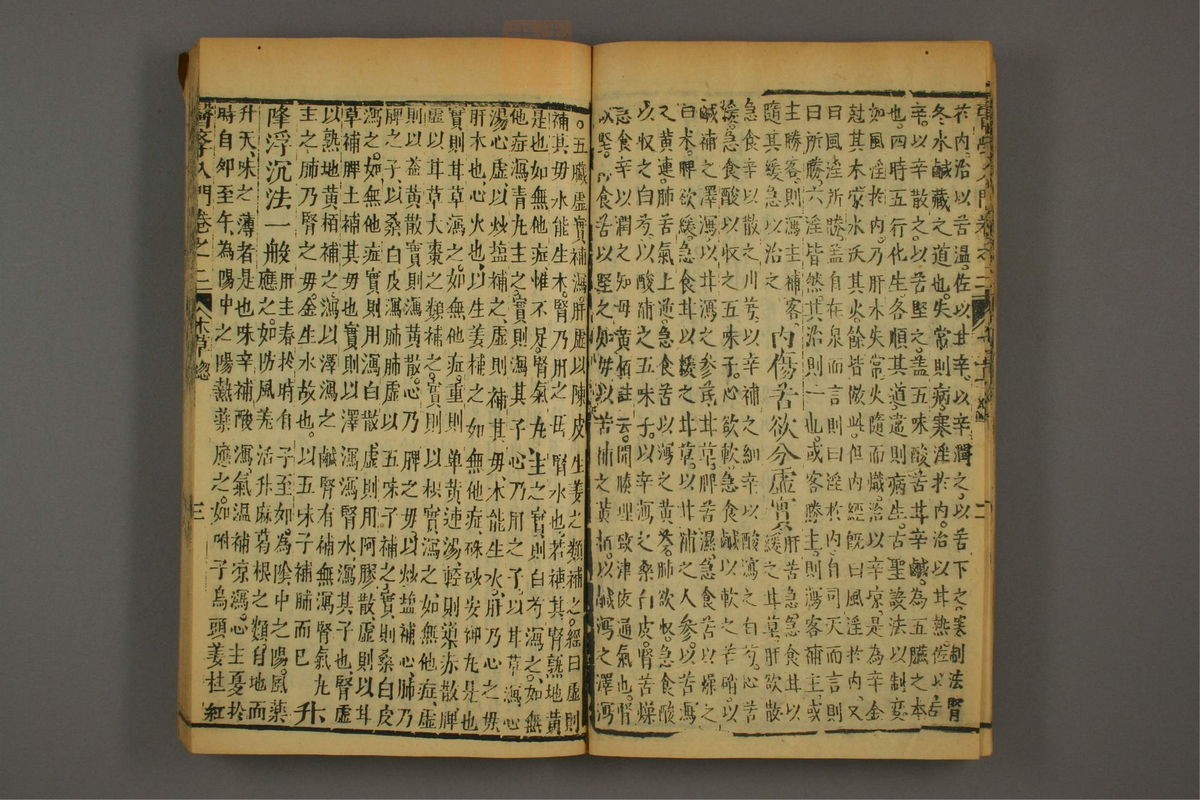 醫學入門卷之二　二
於內。治以苦溫。佐以甘辛。以辛潤之。以苦下之。寒制法腎
冬水鹹藏之道也。失常則病。寒淫於內。治以甘熱。佐以苦
辛。以辛散之。以苦堅之。蓋五味酸苦甘辛鹹為五臟之本
也。四時五行化生各順其道。違則病生。古聖設法以制變
如風淫於內。乃肝木失常火隨而熾。治以辛凉。是為辛金
尅其木。寒水沃其火。餘皆倣此。但內經既曰風淫於內。又
曰風淫所勝。蓋自在泉而言則曰淫於內。自司天而言則
曰所勝。六淫皆然其治則一也。或客勝主。則瀉客補主。或
主勝客。則瀉主補客。
隨其緩急以治之
內傷苦欲分虛實
肝苦急急食甘以
緩之甘草肝欲散
急食辛以散之川芎。以辛補之細辛以酸瀉之白芍。心苦
緩。急食酸以收之五味子。心欲軟。急食鹹以軟之芒硝。以
鹹補之澤瀉。以甘瀉之參芪甘草。脾苦濕。急食苦以燥之
白朮。脾欲緩。急食甘以緩之甘草。以甘補之人參。以苦瀉
之黃連。肺苦氣上逆。急食苦以瀉之黃芩。肺欲收。急食酸
以收之白芍。以酸補之五味子。以辛瀉之桑白皮。腎苦燥
急食辛以潤之知母黃栢註云。開腠理致津液通氣也。腎
欲堅。急食苦以堅之知母以苦補之黃栢。以鹹瀉之澤瀉
。五臟虛實補瀉。肝虛以陳皮生姜之類補之。經曰虛則
補其母水能生木。腎乃肝之母。腎水也。若補其腎熟地黃
是也如無他症惟不足。腎氣丸主之實。則白芍瀉之。如無
他症瀉青丸主之。實則瀉其子心乃肝之子。以甘草瀉心
湯心虛以炒塩補之。虛則補其母木能生火。肝乃心之母
肝木也心火也以生姜補之如無他症硃砂安神丸是也
實則甘草瀉之。如無他症。重則單黃連湯。輕則導赤散也脾
虛以甘草大棗之類補之。實則以枳實瀉之。如無他症虛
則以益黃散實則瀉黃散。心乃脾之母以炒塩補心肺乃
脾之子以桑白皮瀉肺肺虛以五味子補之實則桑白皮
瀉之。如無他症實則用瀉白散虛則用阿膠散。虛則以甘
草補脾土補其母也實則以澤瀉瀉腎水瀉其子也。腎虛
以熟地黃栢補之瀉以澤瀉之鹹腎有補無瀉腎氣丸
主之肺乃腎之母。金生水故也。以五味子補肺而已　升
降浮沉法一般
肝主春於時自子至卯。為陰中之陽。風藥
應之。如防風羌活升麻葛根之類。自地而
升天。味之薄者是也味辛補酸瀉氣溫補凉瀉。心主夏於
時自卯至午為陽中之陽熱藥應之。如附子烏頭姜桂紅
醫學入門卷之二　本草總　三